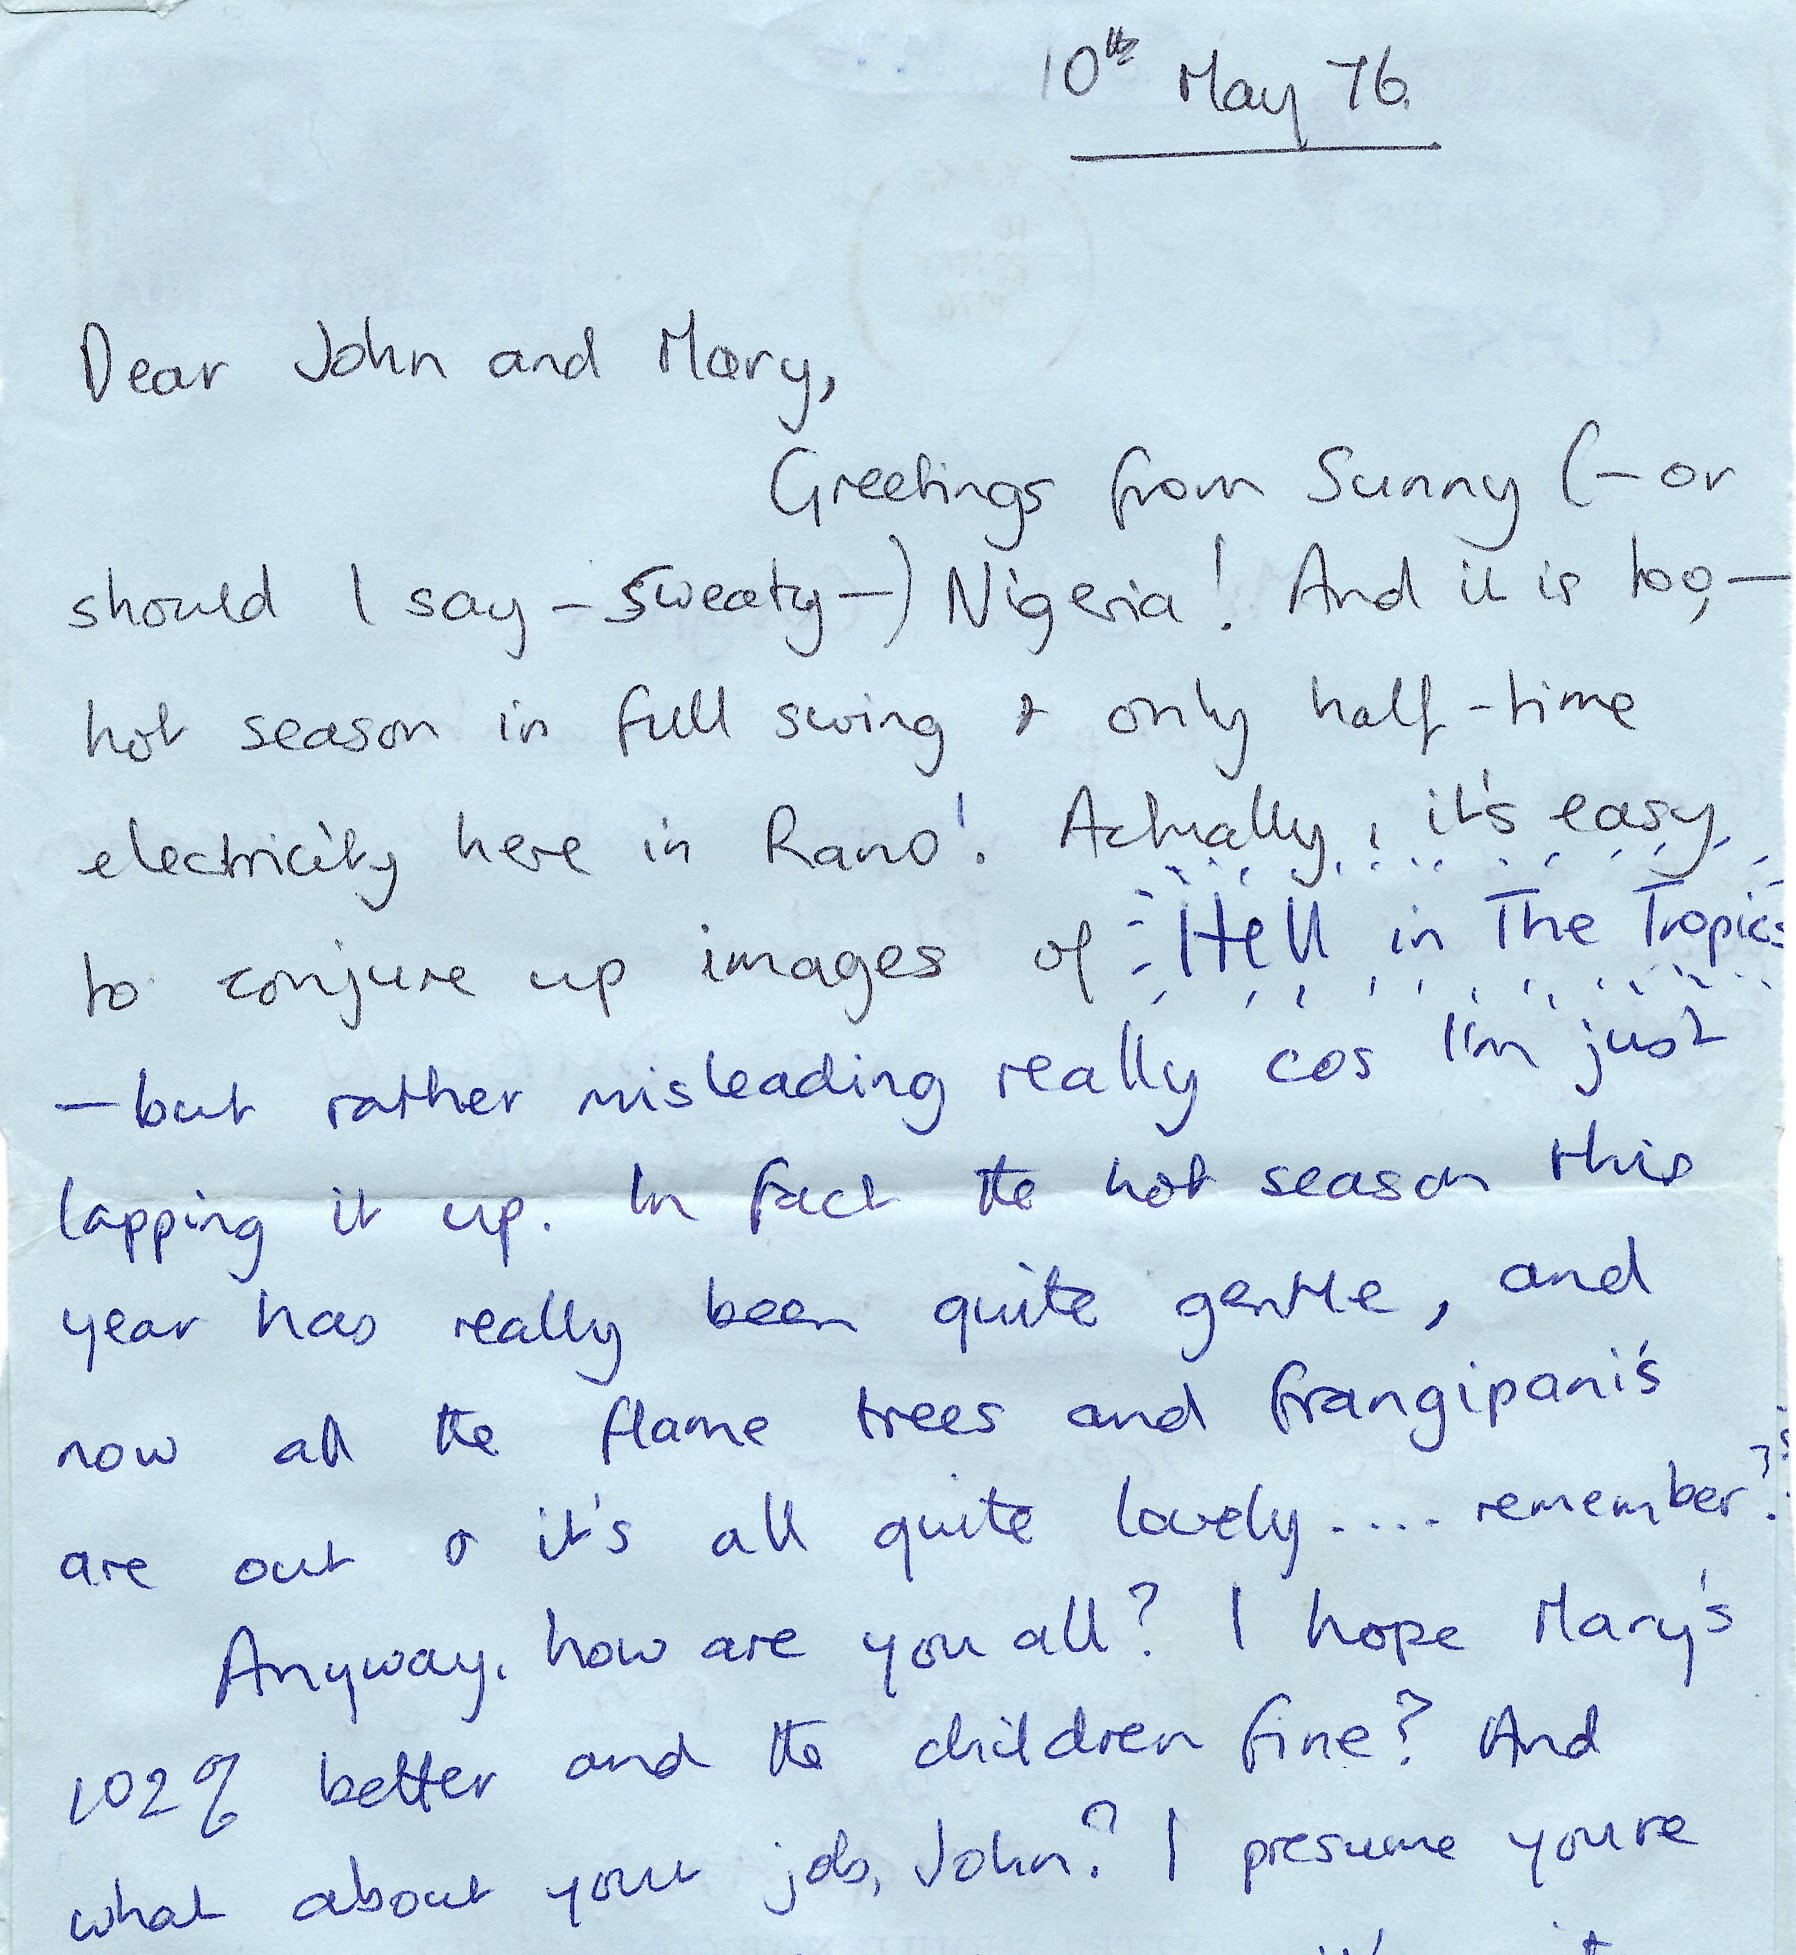 10th May 76.
Dear John and Mary,
Greetings from Sunny (- or
should I say - sweaty -) Nigeria! And it is too, -
hot season in full swing & only half-time
electricity here in Rano! Actually, it's easy
to conjure up images of Hell in The Tropics
- but rather misleading really cos I'm just
lapping it up. In fact the hot season this
year has really been quite gentle, and
now all the flame trees and frangipani's
are out & it's all quite lovely.... remember?
Anyway, how are you all? I hope Mary's
102% better and the children fine? And
what about your job, John? I presume you're